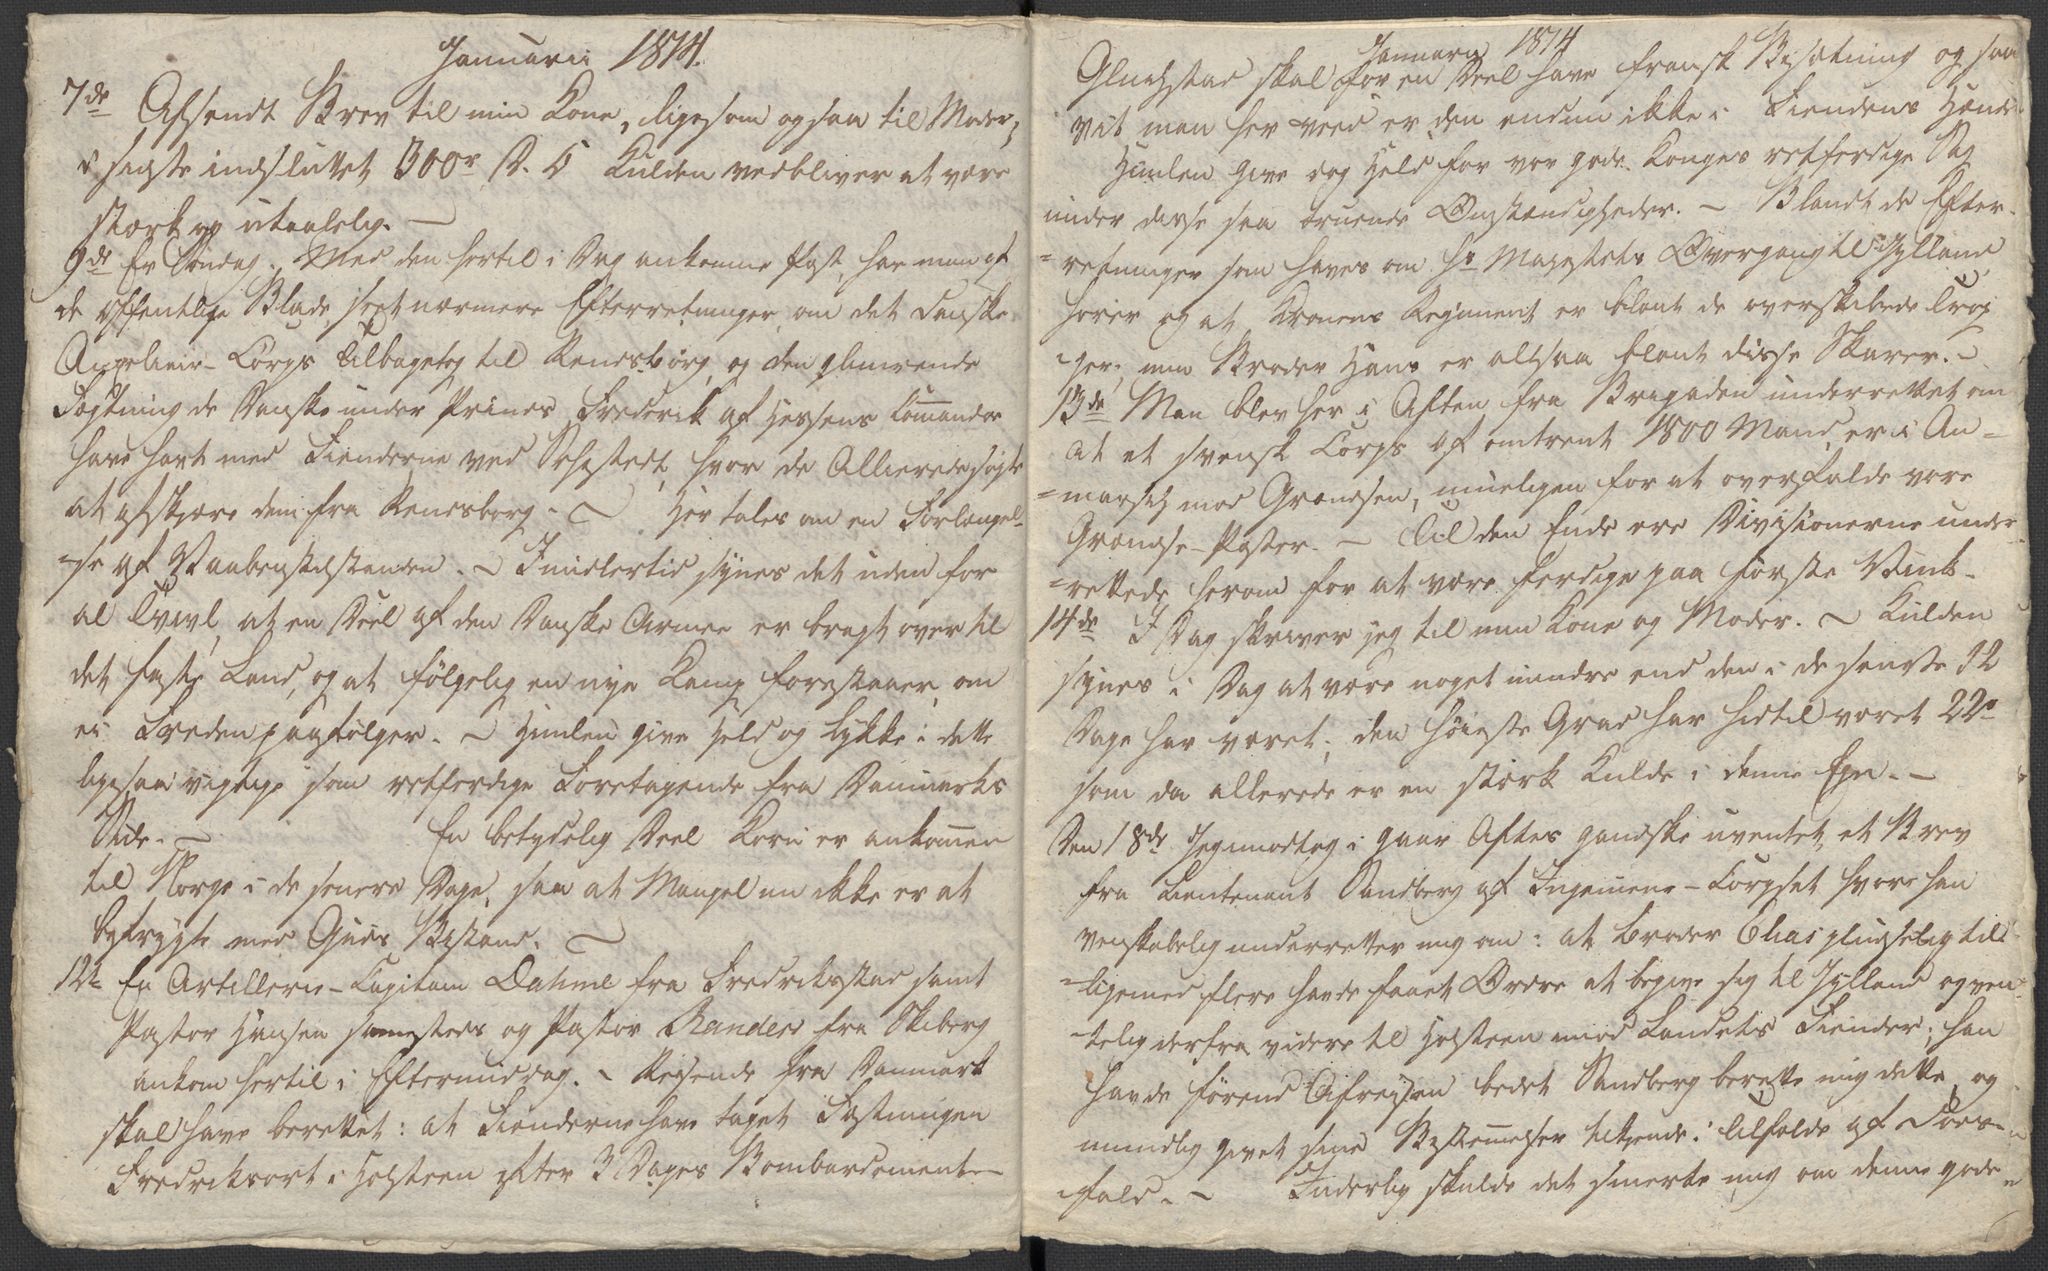 Januarii 1814.
7de Afsendt Brev til min Kone, ligesom ogsaa til Moder,
i sidste indsluttet 300r D. C Kulden vedbliver at være
stærk og utaalelig. —
9de Er Søndag. Med den hertil i Dag ankomne Post, har man af
de offentlige Blade seet nærmere Efterretninger om det danske
Auxeliair-Corps Tilbagetog til Rendsborg, og den glimrende
Fægtning de Danske under Prinds Frederik af Hessens Commando
have havt med Fienderne ved Sehestedt, hvor de Allierede søgte
at afskjære dem fra Rendsborg. — Her tales om en Forlængel-
-se af Vaabenstilstanden. — Imidlertid synes det uden for
al Tvivl, at en Deel af den Danske Armee er bragt over til
det faste Land, og at følgelig en nye Kamp forestaaer, om
ei Freden paafølger. — Himlen give Held og Lykke i dette
ligesaa vigtige som retfærdige Foretagende fra Danmarks
Side. — En betydelig Deel Korn er ankommen
til Norge i de senere Dage, saa at Mangel nu ikke er at
befrygte med Guds Bistand. —
12te Er Artillerie-Capitain Dahme fra Fredriksstad samt
Pastor Hansen sammesteds og Pastor Rander fra Skiberg
ankom hertil i Eftermiddag. — Reisende fra Danmark
skal have berettet: at Fienderne have taget Fæstningen
Fredriksort i Holsteen efter 3 Dages Bombardement —
Januarii 1814
Gluckstad skal for en Deel have fransk Besætning og saa
vit man her veed er den endnu ikke i Fiendens Hænd-
Himlen give dog Held for vor gode Konges retfærdige Sag
under disse saa truende Omstændigheder. — Blandt de Efter-
-retninger som haves om Hs Majestets Overgang til Jylland,
hører og at Kronens Regiment er blant de overskibede Trop
-per; min Broder Hans er altsaa blant disse Skarer. —
13de Man blev her i Aften fra Brigaden underrettet om
at et svensk Corps af omtrent 1800 Mand, er i An-
-marsch mod Grændsen, mueligen for at overfalde vore
Grændse-Poster. — Til den Ende ere Divisionerne under-
-rettede herom for at være færdige paa første Vink-
14de I Dag skriver jeg til min Kone og Moder. — Kulden
synes i Dag at være noget mindre end den i de seneste 12
Dage har været; den høieste Grad har hidtil været 22°
som da allerede er en stærk Kulde i denne Egn. —
Den 18de Jeg modtog i gaar Aftes gandske uventet, et Brev
fra Lieutenant Sandberg af Ingenieur-Corpset hvori han
venskabelig underretter mig om: at Broder Elias pludselig till-
-ligemed flere havde faaet Ordre at begive sig til Jylland og ven-
-telig derfra videre til Holsteen mod Landets Fiender; han
havde førend Afreisen bedet Sandberg berette mig dette, og
mundtlig givet sine Bestemmelser tilkiende i Tilfælde af Døds-
-fald. — Inderlig skulde det smerte mig om denne gode